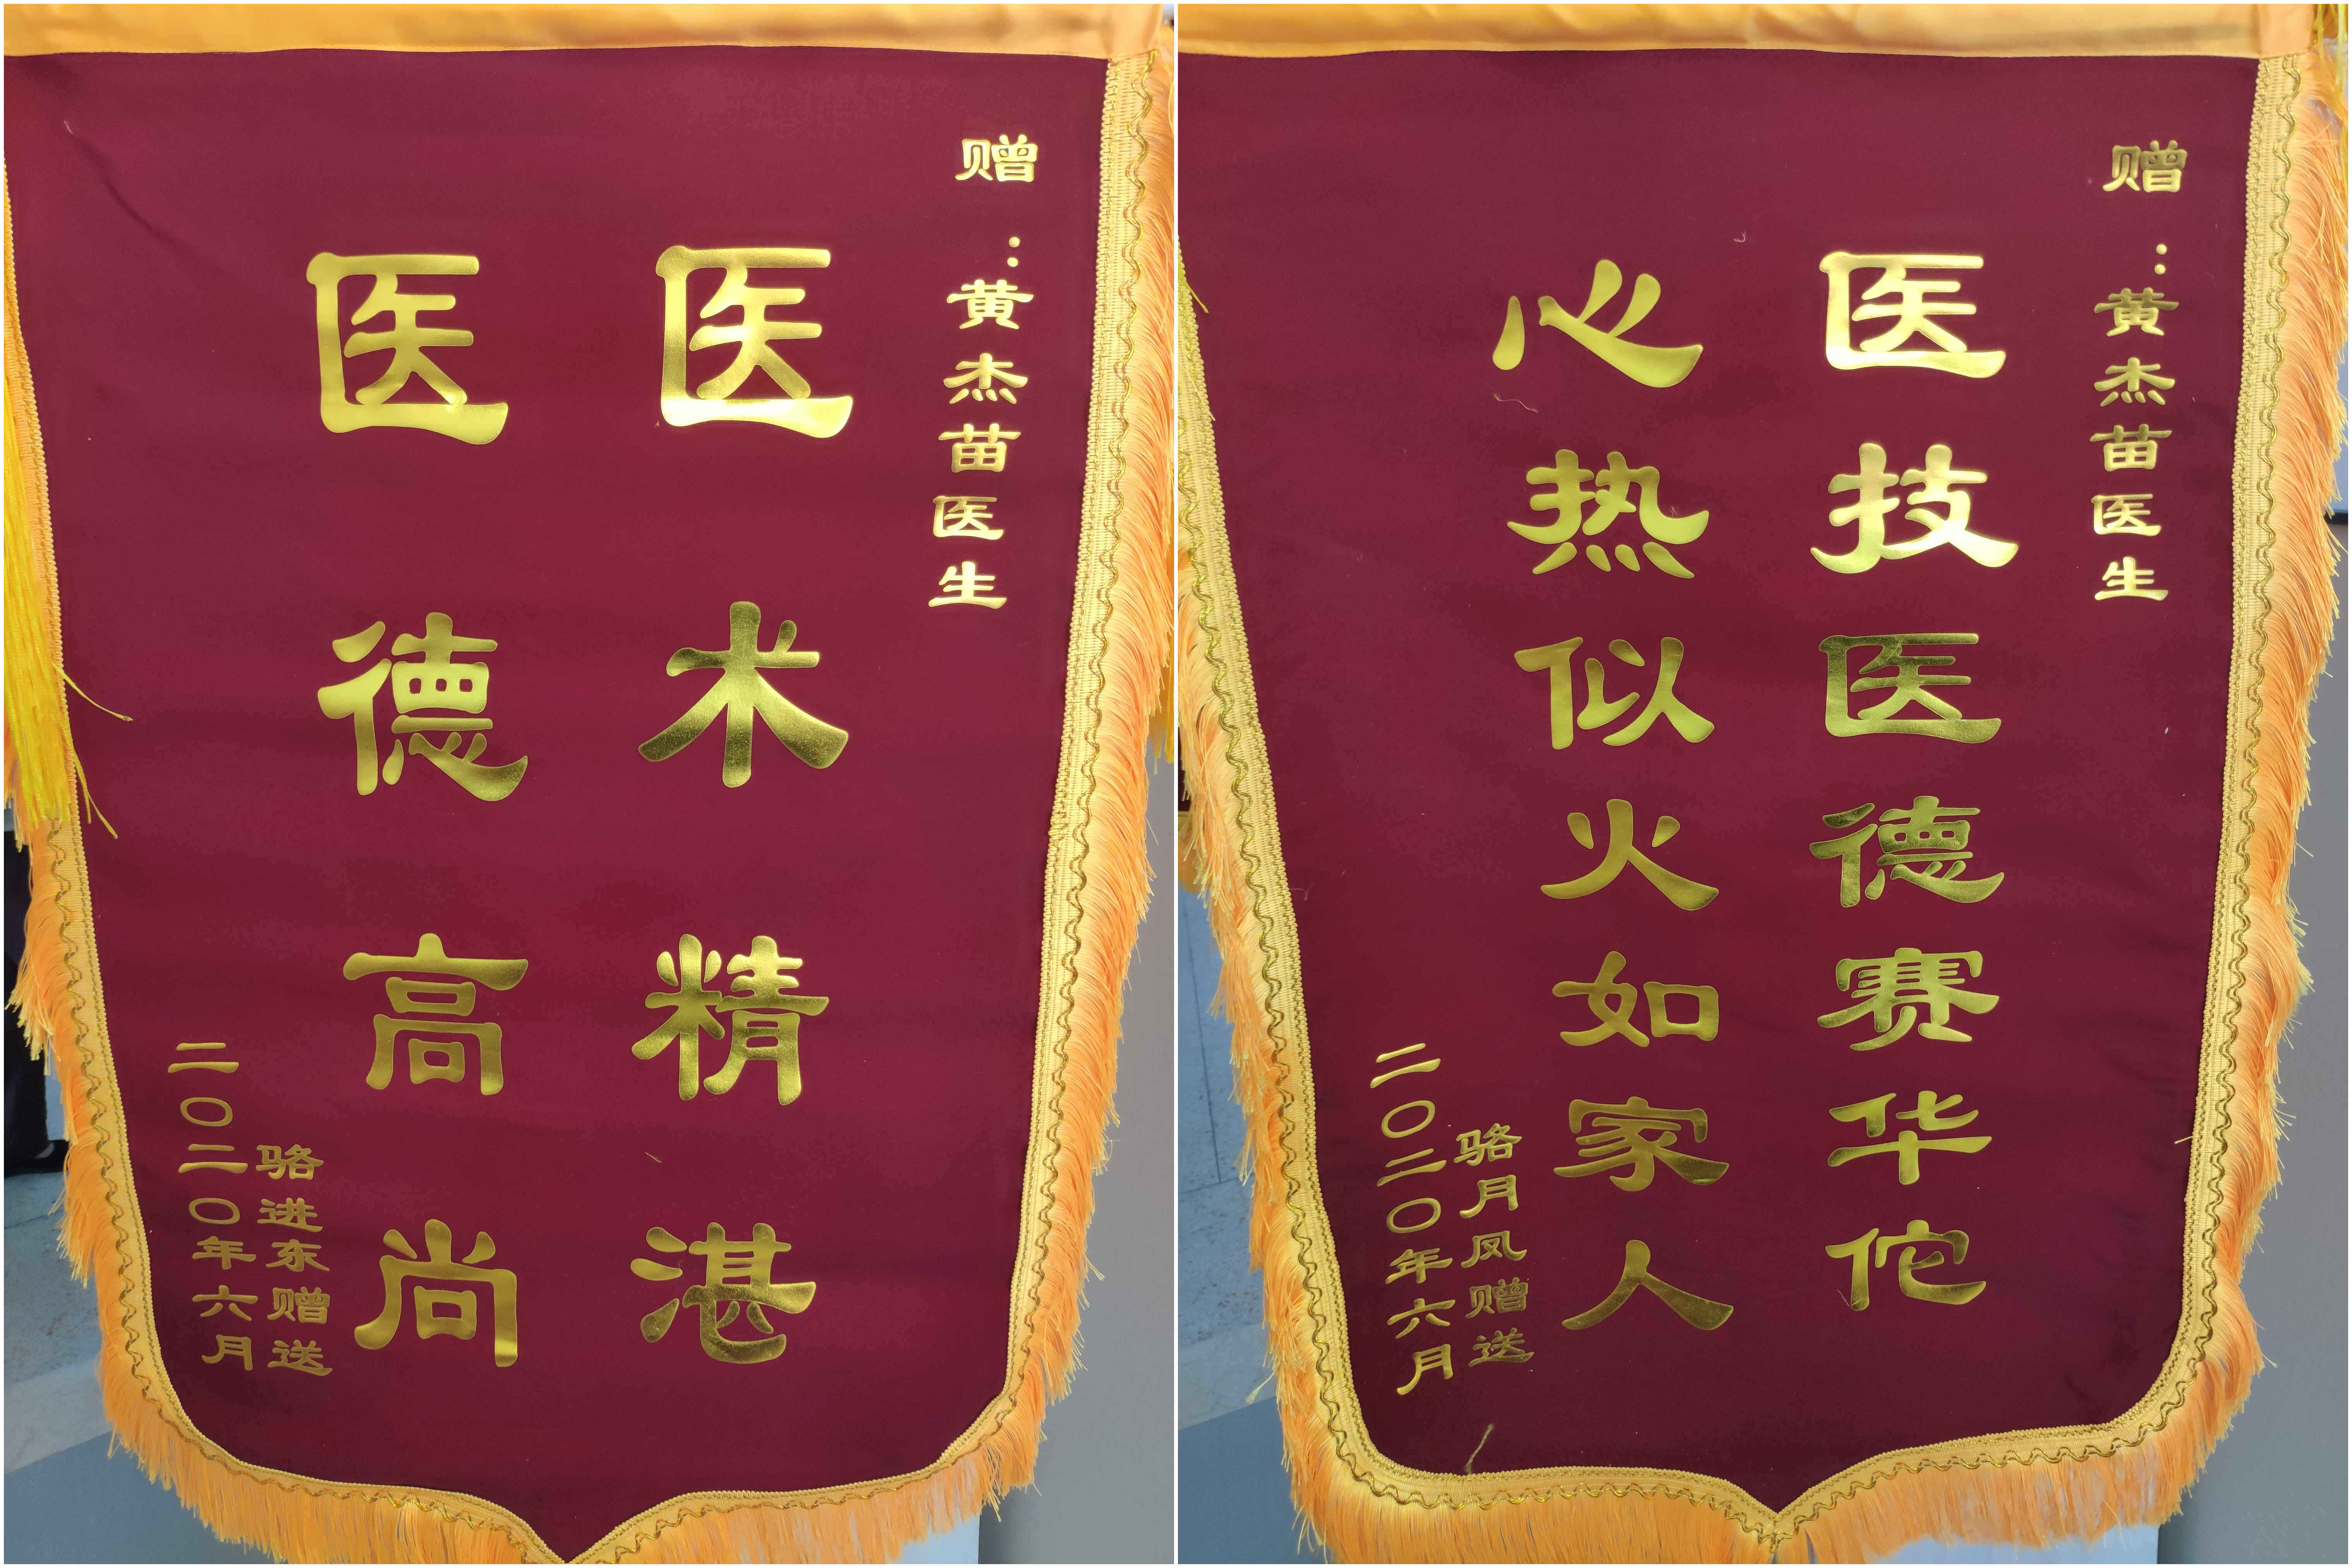 赠：黄杰苗医生
医术精湛
医德高尚
骆进东赠送
二〇二〇年六月
赠：黄杰苗医生
医技医德赛华佗
心热似火如家人
骆月凤赠送
二〇二〇年六月